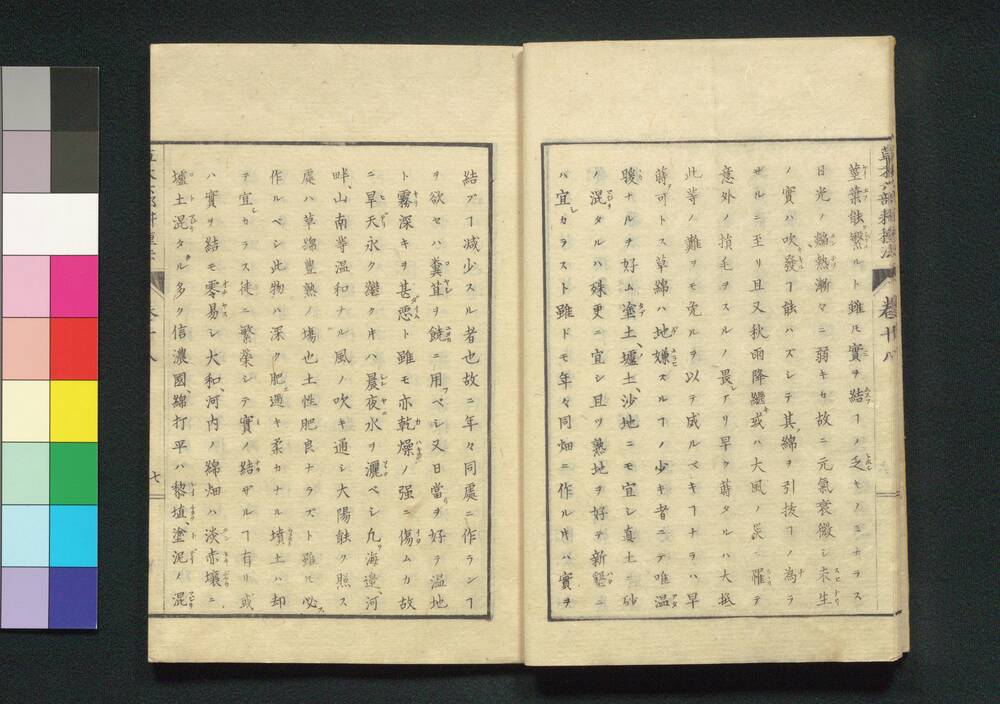 草木六部耕種法 卷十八
莖葉能繁ルト雖モ實ヲ結フノ乏キノミナラス
日光ノ熾熱漸々ニ弱キカ故ニ元氣衰微シ未生
ノ實ハ吹發ヿ能ハズシテ其綿ヲ引抜ヿノ為ラ
ザルニ至リ且又秋雨降繼キ或ハ大風ノ災ニ罹テ
意外ノ損毛ヲスルノ畏レアリ早ク蒔タルハ大抵
此等ノ難ヲモ免ルヲ以テ成ルベキヿナラハ早
蒔可トス草綿ハ地嫌ズルヿノ少キ者ニテ唯温
暖ナルヲ好ム塗土、壚土、沙地ニモ宜シ真土ニ砂
ノ混タルハ殊更ニ宜シ且ツ熟地ヲ好テ新墾ニ
ハ宜カラスト雖ドモ年々同畑ニ作ル𪜈ハ實ヲ
結フヿ減少スル者也故ニ年々同處ニ作ランヿ
ヲ欲セハ糞苴ヲ饒ニ用フベシ又日當リヲ好ラ温地
ト霧深キヲ甚悪ト雖モ亦乾燥ノ强ニ傷ムカ故
ニ旱天永ク繼クキハ晨夜水ヲ灑ベシ凢ソ海邉、河
畔、山南等温和ナル風ノ吹キ通シ大陽能ク照ス
處ハ草綿豊熟ノ塲也土性肥良ナラズト雖モ必ス
作ルベシ此物ハ深ク肥ニ過キ柔カナル墳土ハ却
テ宜カラス徒ニ繁榮シテ實ノ結ザルヿ有リ或
ハ實ヲ結モ零易シ大和、河内ノ綿畑ハ淡赤壤ニ
壚土混タル多ク信濃國、綿打平ハ黎埴、塗泥ノ混
七